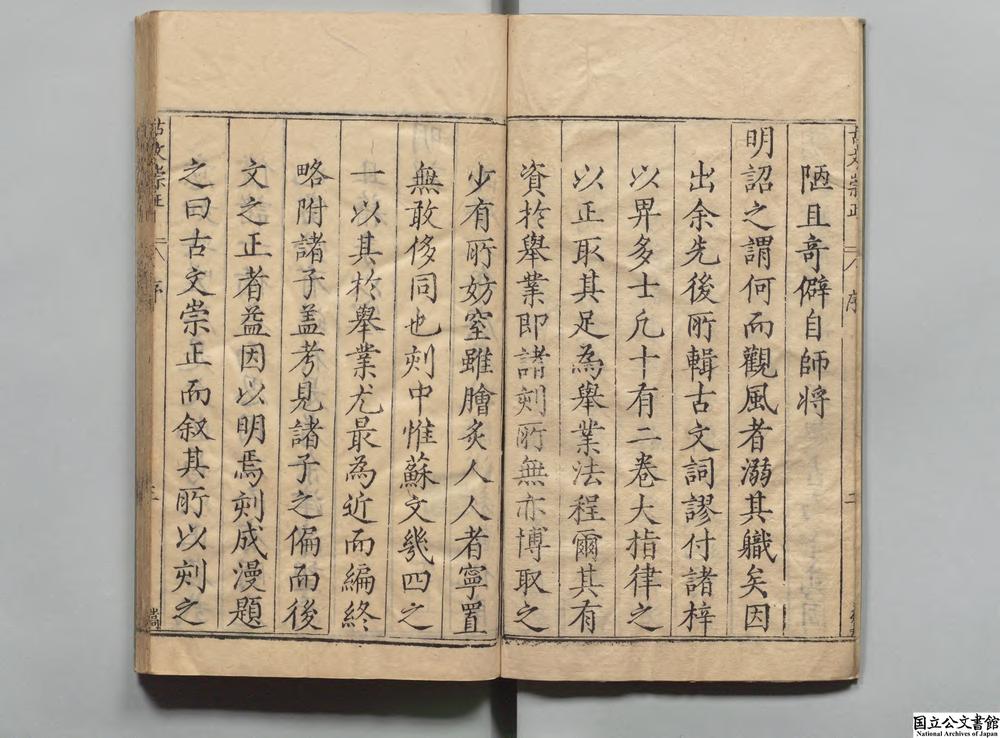 古文崇正 序 二
陋且奇僻自師将
明詔之謂何而觀風者溺其職矣因
出余先後所輯古文詞謬付諸梓
以畀多士凢十有二卷大指律之
以正取其足為舉業法程爾其有
資扵舉業即諸刻所無亦博取之
少有所妨窒雖膾炙人人者寧置
無敢侈同也刻中惟蘇文幾四之
一以其扵舉業尤最為近而編終
略附諸子盖考見諸子之偏而後
文之正者益因以明焉刻成漫題
之曰古文崇正而叙其所以刻之
古文崇正 序
国立公文書館
National Archives of Japan